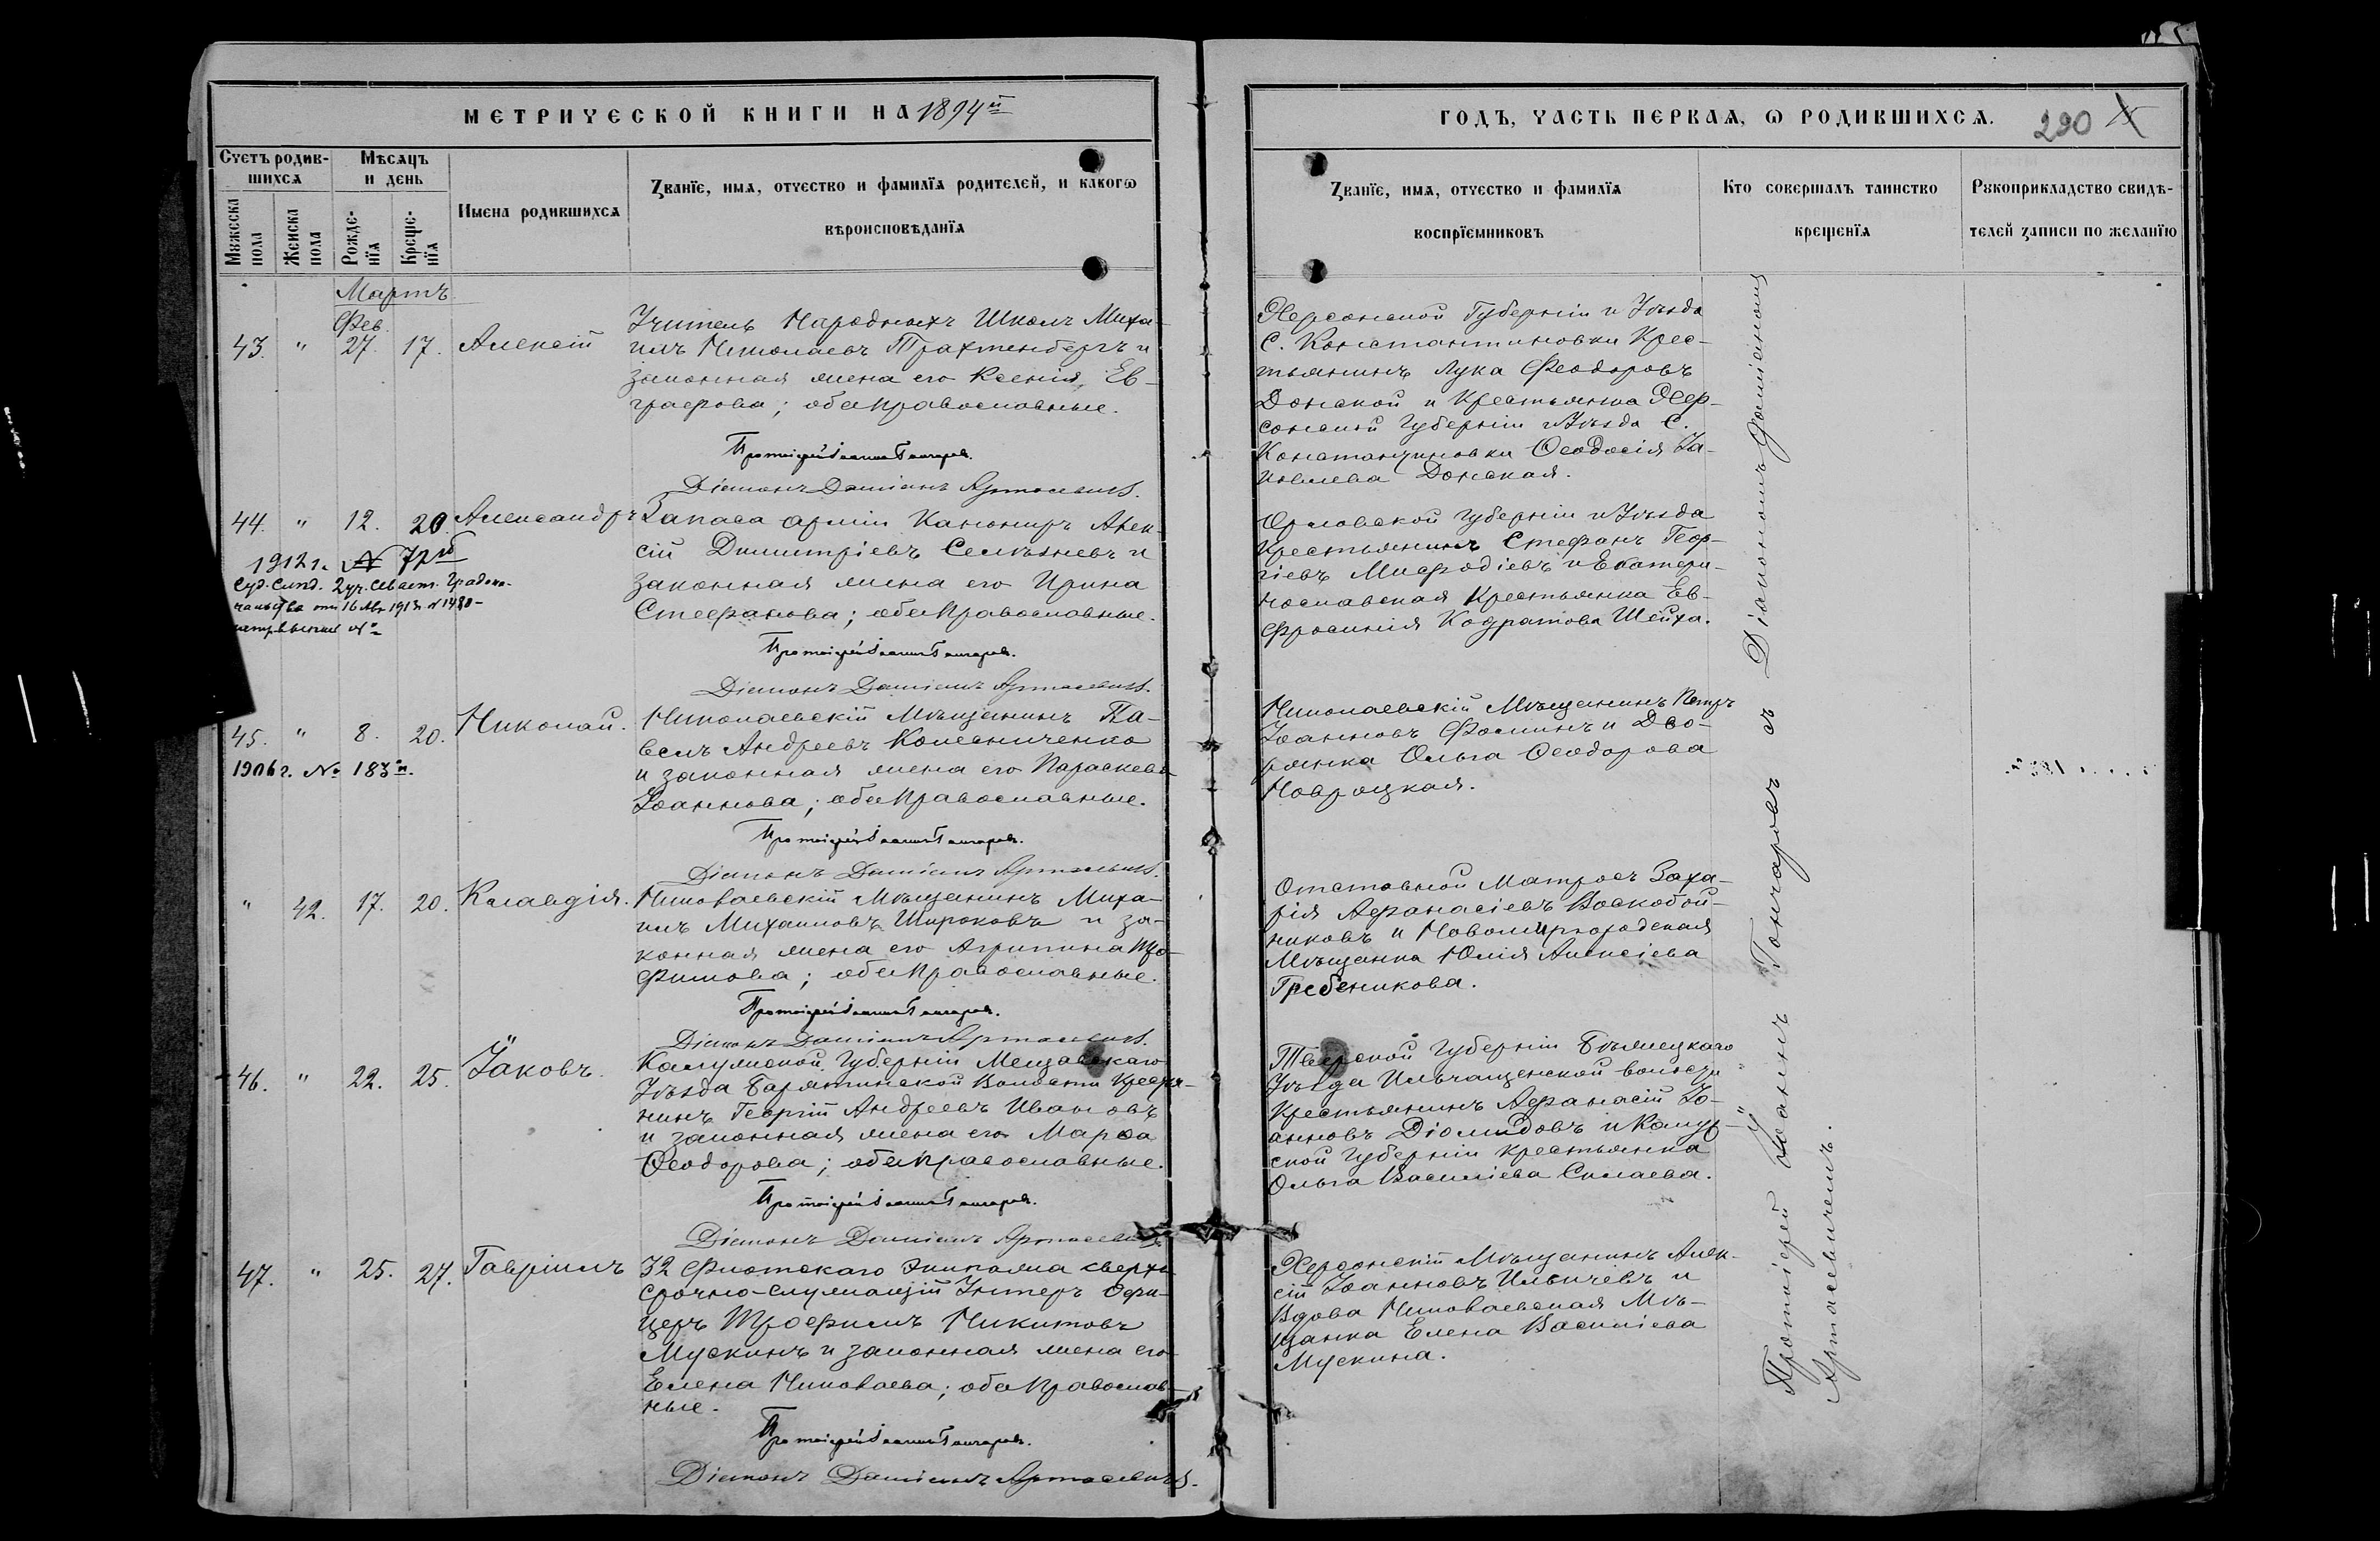 МЕТРИЧЕСКОЙ КНИГИ НА 1894й
ГОДЪ, ЧАСТЬ ПЕРВАѦ, Ѡ РОДИВШИХСѦ. 290
Счетъ родив-
шихсѧ
Мѣсѧцъ
и день
Мꙋжеска
пола
Женска
пола
Рожде-
нїѧ
Креще-
нїѧ
Имена родившихсѧ
Званїе, имѧ, отчество и фамилїѧ родителей, и какогѡ
вѣроисповѣданїѧ
Званїе, имѧ, отчество и фамилїѧ
воспрїемниковъ
Кто совершалъ таинство
крещенїѧ
Рꙋкоприкладство свидѣ-
телей записи по желанїю
Мартъ
Фев.
43. " 27. 17. Алексій
Учитель Народныхъ Школъ Миха-
илъ Николаевъ Трахтенбергъ и
законная жена его Ксенія Ев-
графова; оба православные.
Протоіерей Іоаннъ Гончаровъ.
Діаконъ Даміанъ Артасевичъ.
Херсонской Губерніи и Уѣзда
С. Константиновки Крес-
тьянинъ Лука Феодоровъ
Донской и Крестьянка Хер-
сонской Губерніи и Уѣзда С.
Константиновки Ѳеодосія Іа-
ковлева Донская.
44. " 12. 20. Александръ
1912 г. № 7рй
Запаса арміи Канониръ Алек-
сій Димитріевъ Селѣзневъ и
законная жена его Ирина
Стефанова; оба православные.
Протоіерей Іоаннъ Гончаровъ.
Діаконъ Даміанъ Артасевичъ.
Орловской Губерніи и Уѣзда
Крестьянинъ Стефанъ Геор-
гіевъ Мефодіевъ и Екатери-
нославская Крестьянка Ев-
фросинія Кодратова Шейха.
45. " 8. 20. Николай.
1906 г. № 183й.
Николаевскій Мѣщанинъ Па-
велъ Андреевъ Колесниченко
и законная жена его Параскева
Іоаннова; оба православные.
Протоіерей Іоаннъ Гончаровъ.
Діаконъ Даміанъ Артасевичъ.
Николаевскій Мѣщанинъ Петръ
Іоанновъ Фоминъ и Дво-
рянка Ольга Ѳеодорова
Новроцкая.
" 42. 17. 20. Клавдія.
Николаевскій Мѣщанинъ Миха-
илъ Михаиловъ Широковъ и за-
конная жена его Агрипина Тро-
фимова; оба православные.
Протоіерей Іоаннъ Гончаровъ.
Діаконъ Даміанъ Артасевичъ.
Отставной Матросъ Заха-
рія Афанасіевъ Воскобой-
никовъ и Новомиргородская
Мѣщанка Юлія Алексіева
Гребеникова.
46. " 22. 25. Іаковъ.
Калужской Губерніи Мещовскаго
Уѣзда Барятинской Волости Крестья-
нинъ Георгій Андреевъ Ивановъ
и законная жена его Марѳа
Ѳеодорова; оба православные.
Протоіерей Іоаннъ Гончаровъ.
Діаконъ Даміанъ Артасевичъ.
Тверской Губерніи Бѣжецкаго
Уѣзда волости
Крестьянинъ Афанасій Іо-
анновъ Діомидовъ и Калуж-
ской Губерніи крестьянка
Ольга Василіева Силаева.
47. " 25. 27. Гавріилъ
32 Флотскаго Экипажа сверхъ
срочно-служащій Унтеръ Офи-
церъ Трофимъ Никитовъ
Мускинъ и законная жена его
Елена Николаева; оба православ-
ные.
Протоіерей Іоаннъ Гончаровъ.
Діаконъ Даміанъ Артасевичъ.
Херсонскій Мѣщанинъ Алек-
сій Іоанновъ Ильичевъ и
Вдова Николаевская Мѣ-
щанка Елена Василіева
Мускина.
Протоіерей Іоаннъ Гончаровъ съ Діакономъ Даміаномъ
Артасевичемъ.